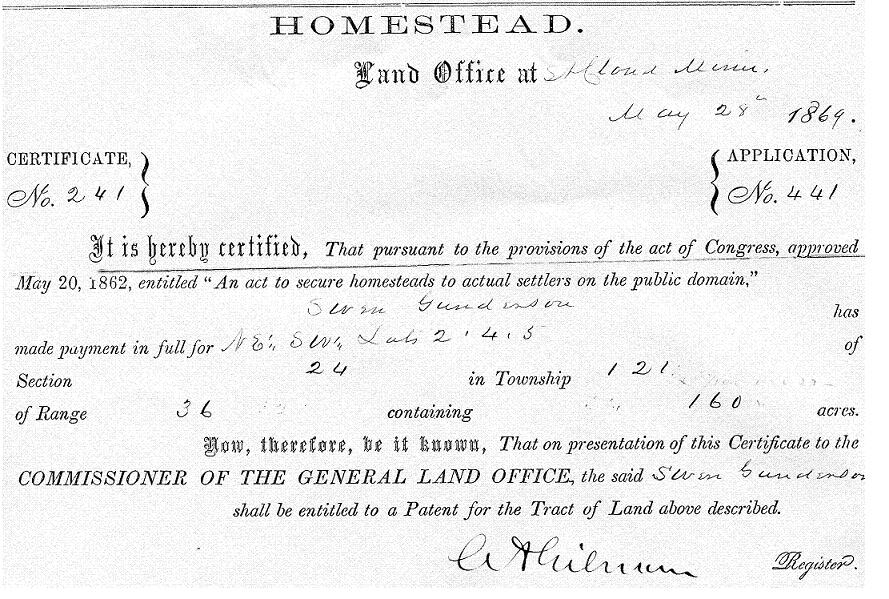 HOMESTEAD.
Land Office at St Cloud Minn.
May 28th 1869.
CERTIFICATE, No. 241
APPLICATION, No. 441
It is hereby certified, That pursuant to the provisions of the act of Congress, approved
May 20, 1862, entitled “An act to secure homesteads to actual settlers on the public domain,”
Swen Gunderson has
made payment in full for NE¼ SW¼ Lots 2. 4. 5 of
Section 24 in Township 121
of Range 36 containing 160 acres.
Now, therefore, be it known, That on presentation of this Certificate to the
COMMISSIONER OF THE GENERAL LAND OFFICE, the said Swen Gunderson
shall be entitled to a Patent for the Tract of Land above described.
Register.